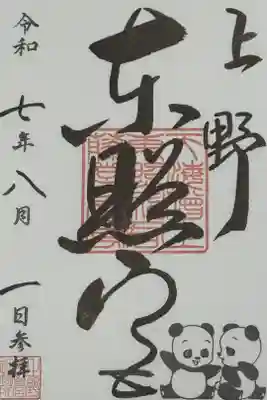 上野
東照宮
令和七年八月一日参拝